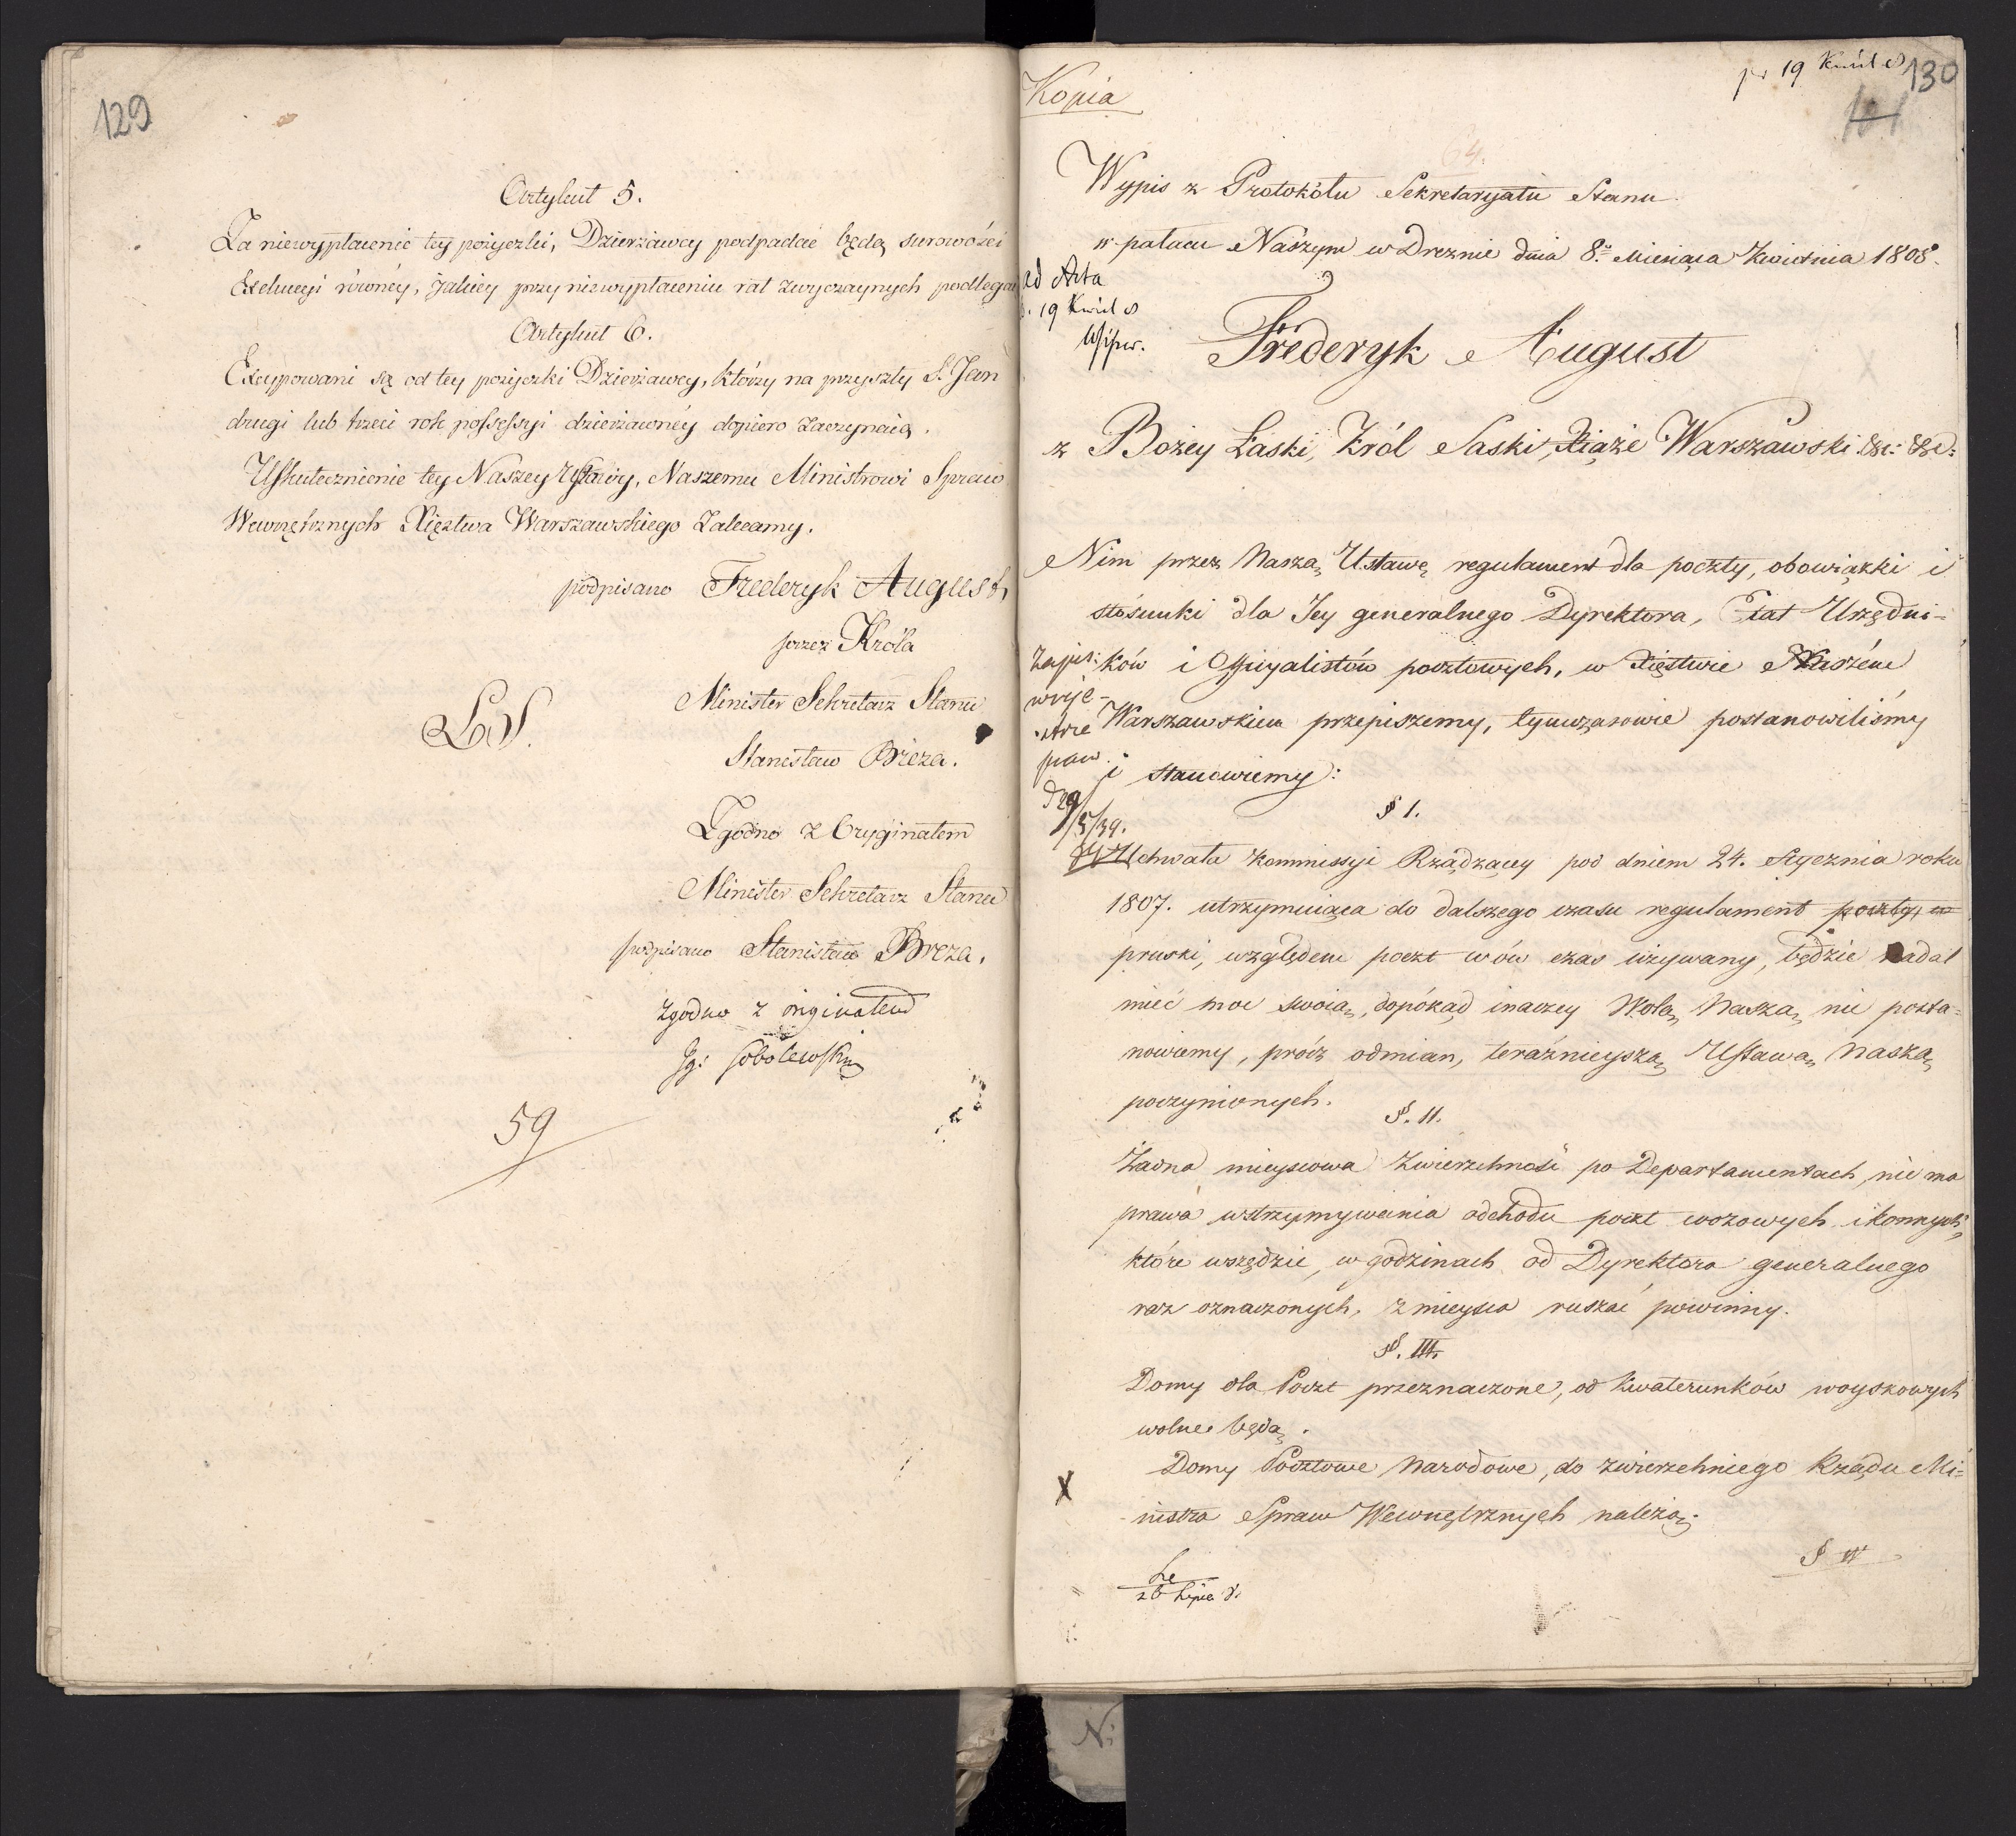 129
Artykuł 5.
Za niewypłacenie tey pożyczki, Dzierżawcy podpadać będą surowości
Exekucyi równéy, jakiey przy niewypłaceniu rat zwyczaynych podlegaią
Artykuł 6.
Excypowani są od tey pożyczki Dzierżawcy, którzy na przyszły S. Jan
drugi lub trzeci rok possessyi dzierżawnéy dopiero zaczynaią.
Uskutecznienie tey Naszey Ustawy, Naszemu Ministrowi Spraw
Wewnętrznych Xięztwa Warszawskiego Zalecamy.
podpisano Frederyk August,
przez Króla
Minister Sekretarz Stanu
LS.
Stanisław Breza.
Zgodno z Oryginałem
Minister Sekretarz Stanu
podpisano Stanisław Breza.
Zgodno z originałem
Ig: Sobolewski
59
pr 19 Kwiet 8 130
Kopia
101
64.
Wypis z Protokółu Sekretaryatu Stanu
w pałacu Naszym w Dreznie dnia 8. Miesiąca Kwietnia 1808.
ad Acta
d. 19 Kwiet 8
Frederyk August
z Bożey Łaski, Król Saski, Xiąże Warszawski &c: &c:
Nim przez Naszą Ustawę regulament dla poczty, obowiązki i
stósunki dla Jey generalnego Dyrektora, Etat Urzędni-
ków i Officyalistów pocztowych, w Xięstwie Naszém
Warszawskiem przepiszemy, tymczasowie postanowiliśmy
i stanowiemy:
§ 1.
Uchwała Kommissyi Rządzącey pod dniem 24. Stycznia roku
1807. utrzymuiąca do dalszego czasu regulament poczty, w
pruski, względem poczt wów czas używany, będzie nadal
mieć moc swoią, dopókąd inaczey Wolą Naszą nie posta-
nowiemy, prócz odmian, teraźnieyszą Ustawą Naszą
poczynionych.
§. II.
Żadna mieyscowa Zwierzchność po Departamentach, nie ma
prawa wstrzymywania odchodu poczt wozowych i konnych,
które wszędzie, w godzinach od Dyrektora generalnego
raz oznaczonych, z mieysca ruszać powinny.
§. III.
Domy dla Poczt przeznaczone, od kwaterunków woyskowych
wolne będą.
Domy Pocztowe Narodowe, do zwierzchniego Rządu Mi-
X
nistra Spraw Wewnętrznych należą.
§ IV